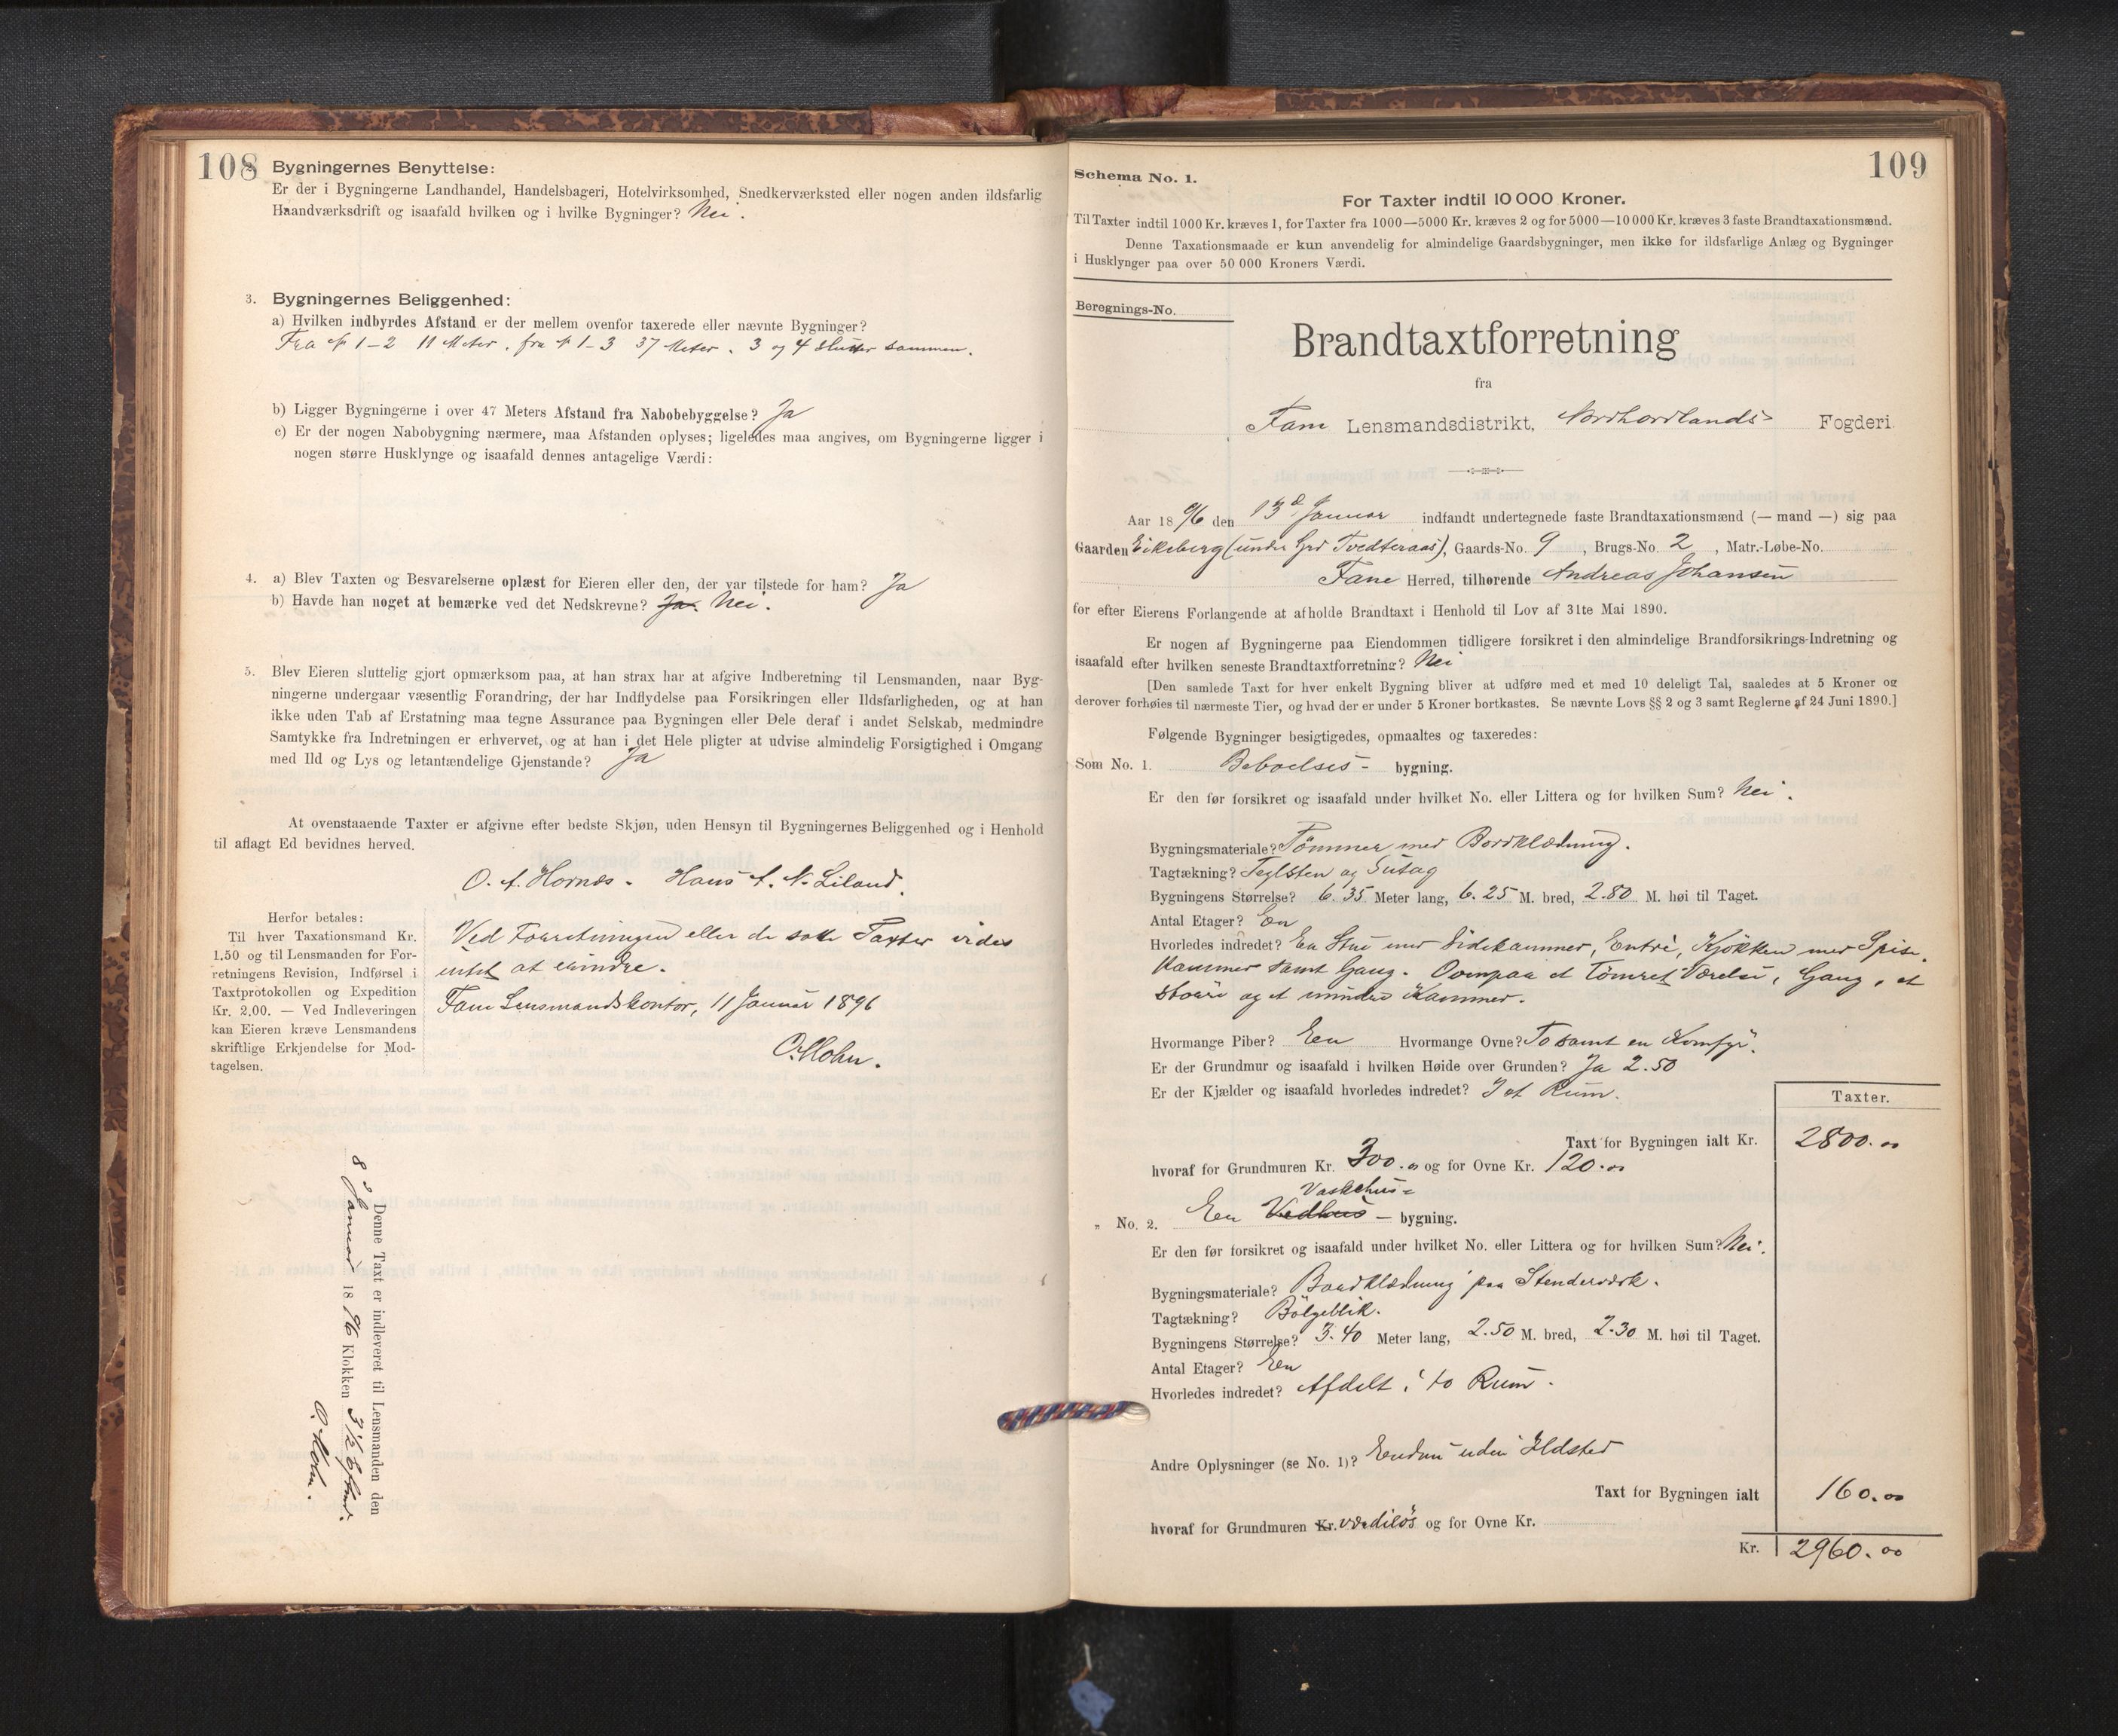 108
Bygningernes Benyttelse:
Er der i Bygningerne Landhandel, Handelsbageri, Hotelvirksomhed, Snedkerværksted eller nogen anden ildsfarlig
Haandværksdrift og isaafald hvilken og i hvilke Bygninger? Nei.
3. Bygningernes Beliggenhed:
a) Hvilken indbyrdes Afstand er der mellem ovenfor taxerede eller nævnte Bygninger?
Fra № 1-2 11 Meter, fra № 1-3 37 Meter. 3 og 4 slutter sammen.
b) Ligger Bygningerne i over 47 Meters Afstand fra Nabobebyggelse? Ja
c) Er der nogen Nabobygning nærmere, maa Afstanden oplyses; ligeledes maa angives, om Bygningerne ligger i
nogen større Husklynge og isaafald dennes antagelige Værdi:
4. a) Blev Taxten og Besvarelserne oplæst for Eieren eller den, der var tilstede for ham? Ja
b) Havde han noget at bemærke ved det Nedskrevne? Ja. Nei.
5. Blev Eieren sluttelig gjort opmærksom paa, at han strax har at afgive Indberetning til Lensmanden, naar Byg-
ningerne undergaar væsentlig Forandring, der har Indflydelse paa Forsikringen eller Ildsfarligheden, og at han
ikke uden Tab af Erstatning maa tegne Assurance paa Bygningen eller Dele deraf i andet Selskab, medmindre
Samtykke fra Indretningen er erhvervet, og at han i det Hele pligter at udvise almindelig Forsigtighed i Omgang
med Ild og Lys og letantændelige Gjenstande? Ja
At ovenstaaende Taxter er afgivne efter bedste Skjøn, uden Hensyn til Bygningernes Beliggenhed og i Henhold
til aflagt Ed bevidnes herved.
O. A. Hornæs. Hans A. N. Liland.
Herfor betales:
Til hver Taxationsmand Kr.
1.50 og til Lensmanden for For-
retningens Revision, Indførsel i
Taxtprotokollen og Expedition
Kr. 2.00. — Ved Indleveringen
kan Eieren kræve Lensmandens
skriftlige Erkjendelse for Mod-
tagelsen.
Ved Forretningen eller de satte Taxter vides
intet at erindre.
Fane Lensmandskontor, 11 Januar 1896
O. Mohn.
Denne Taxt er indleveret til Lensmanden den
8d Januar 1896 Klokken 3 1/2 Efterm.
O. Mohn.
109
Schema No. 1.
For Taxter indtil 10 000 Kroner.
Til Taxter indtil 1000 Kr. kræves 1, for Taxter fra 1000—5000 Kr. kræves 2 og for 5000—10 000 Kr. kræves 3 faste Brandtaxationsmænd.
Denne Taxationsmaade er kun anvendelig for almindelige Gaardsbygninger, men ikke for ildsfarlige Anlæg og Bygninger
i Husklynger paa over 50 000 Kroners Værdi.
Beregnings-No.
Brandtaxtforretning
fra
Fane Lensmandsdistrikt, Nordhordlands Fogderi.
Aar 1896 den 13d Januar indfandt undertegnede faste Brandtaxationsmænd (— mand —) sig paa
Gaarden Eikeberg (under Grd Tvedteraas), Gaards-No. 9, Brugs-No. 2, Matr.-Løbe-No.
Fane Herred, tilhørende Andreas Johansen
for efter Eierens Forlangende at afholde Brandtaxt i Henhold til Lov af 31te Mai 1890.
Er nogen af Bygningerne paa Eiendommen tidligere forsikret i den almindelige Brandforsikrings-Indretning og
isaafald efter hvilken seneste Brandtaxtforretning? Nei
[Den samlede Taxt for hver enkelt Bygning bliver at udføre med et med 10 deleligt Tal, saaledes at 5 Kroner og
derover forhøies til nærmeste Tier, og hvad der er under 5 Kroner bortkastes. Se nævnte Lovs §§ 2 og 3 samt Reglerne af 24 Juni 1890.]
Følgende Bygninger besigtigedes, opmaaltes og taxeredes:
Som No. 1. Beboelses- bygning.
Er den før forsikret og isaafald under hvilket No. eller Littera og for hvilken Sum? Nei.
Bygningsmateriale? Tömmer med Bordklædning.
Tagtækning? Teglsten og Sutag
Bygningens Størrelse? 6.35 Meter lang, 6.25 M. bred, 2.80 M. høi til Taget.
Antal Etager? En
Hvorledes indredet? En Stue med Sidekammer, Entré, Kjökken med Spise-
kammer samt Gang. Ovenpaa et Tömret Værelse, Gang, et
större og et mindre Kammer.
Hvormange Piber? Een Hvormange Ovne? To samt en Komfyr.
Er der Grundmur og isaafald i hvilken Høide over Grunden? Ja 2.50
Er der Kjælder og isaafald hvorledes indredet? I et Rum.
Taxter.
Taxt for Bygningen ialt Kr. 2800.00
hvoraf for Grundmuren Kr. 300.00 og for Ovne Kr. 120.00
Vaskehus-
„ No. 2. Een Vedhus — bygning.
Er den før forsikret og isaafald under hvilket No. eller Littera og for hvilken Sum? Nei.
Bygningsmateriale? Bordklædning paa Stenderværk.
Tagtækning? Bölgeblik.
Bygningens Størrelse? 3.40 Meter lang, 2.50 M. bred, 2.30 M. høi til Taget.
Antal Etager? Een
Hvorledes indredet? Afdelt i to Rum.
Andre Oplysninger (se No. 1)? Endnu uden Ildsted
Taxt for Bygningen ialt 160.00
hvoraf for Grundmuren Kr. værdilös og for Ovne Kr.
Kr. 2960.00